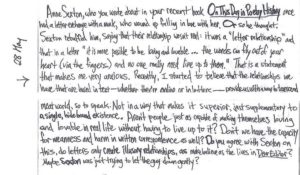 Anne Sexton, who you wrote about in your recent book On This Day in Poetry History, once
had a letter exchange with a monk, who wound up falling in love with her. Or so he thought;
Sexton rebuffed him, saying that their relationship was not: it was a "letter relationship" and
that in a letter "it's more possible to be loving and lovable... the words can fly out of your
heart (via the fingers) and no one really need live up to them." That is a statement
that makes me very anxious. Recently, I started to believe that the relationships we
have that are based in text—whether they're online or in letters—provide us with a way to transcend
meat world, so to speak. Not in a way that makes it superior, just supplementary to
a single, whole bonded existence. Aren't people just as capable of making themselves loving
and lovable in real life without having to live up to it? Don't we have the capacity
for meanness and harm in written correspondence as well? Do you agree with Sexton on
this, do letters only create illusory relationships, as make believe as the lives in Dear Editor?
Maybe Sexton was just trying to let the guy down gently?
28 May